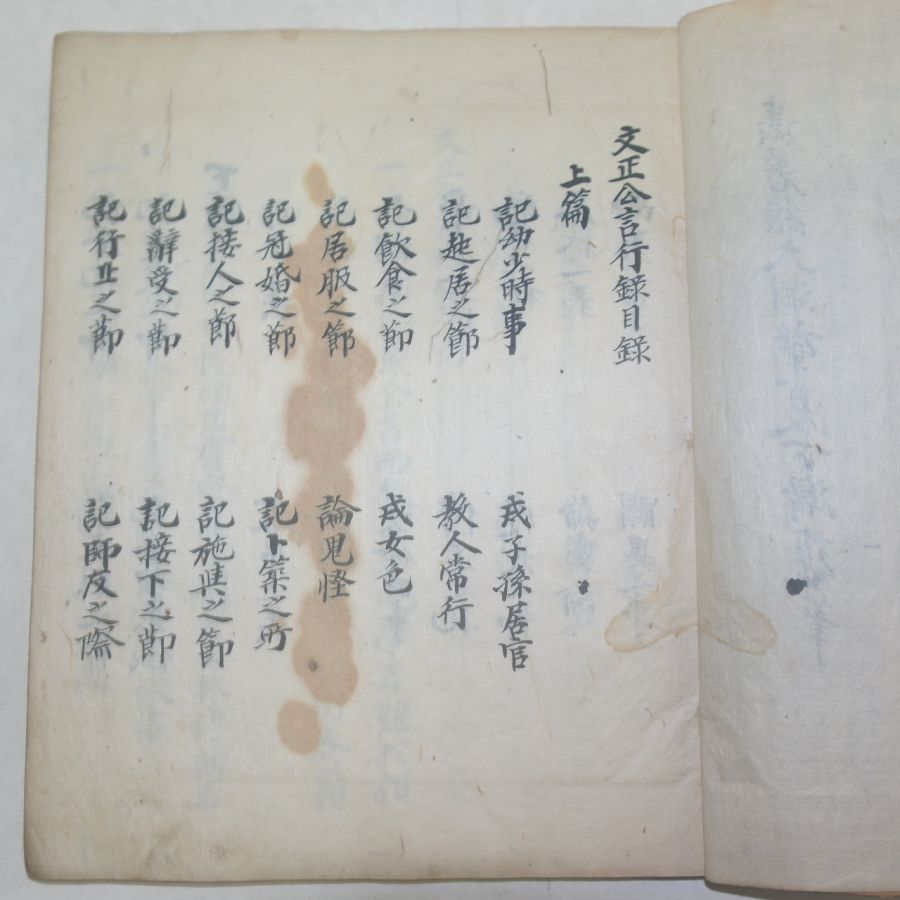 文正公言行錄目錄
上篇
記幼少時事
戒子孫居官
記起居之節
敎人常行
記飮食之節
戒女色
記居服之節
論鬼怪
記冠婚之節
記卜築之所
記接人之節
記施與之節
記辭受之節
記接下之節
記行止之節
記師友之際